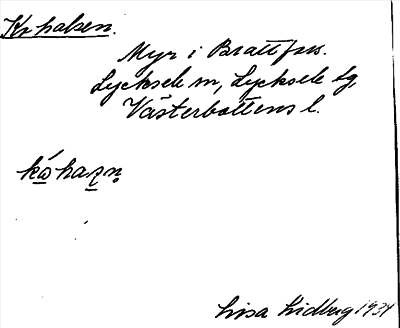 Krhalsen.
Myr i Brattfors.
Lycksele sn, Lycksele lg,
Västerbottens l.
Lisa Lidberg 1934